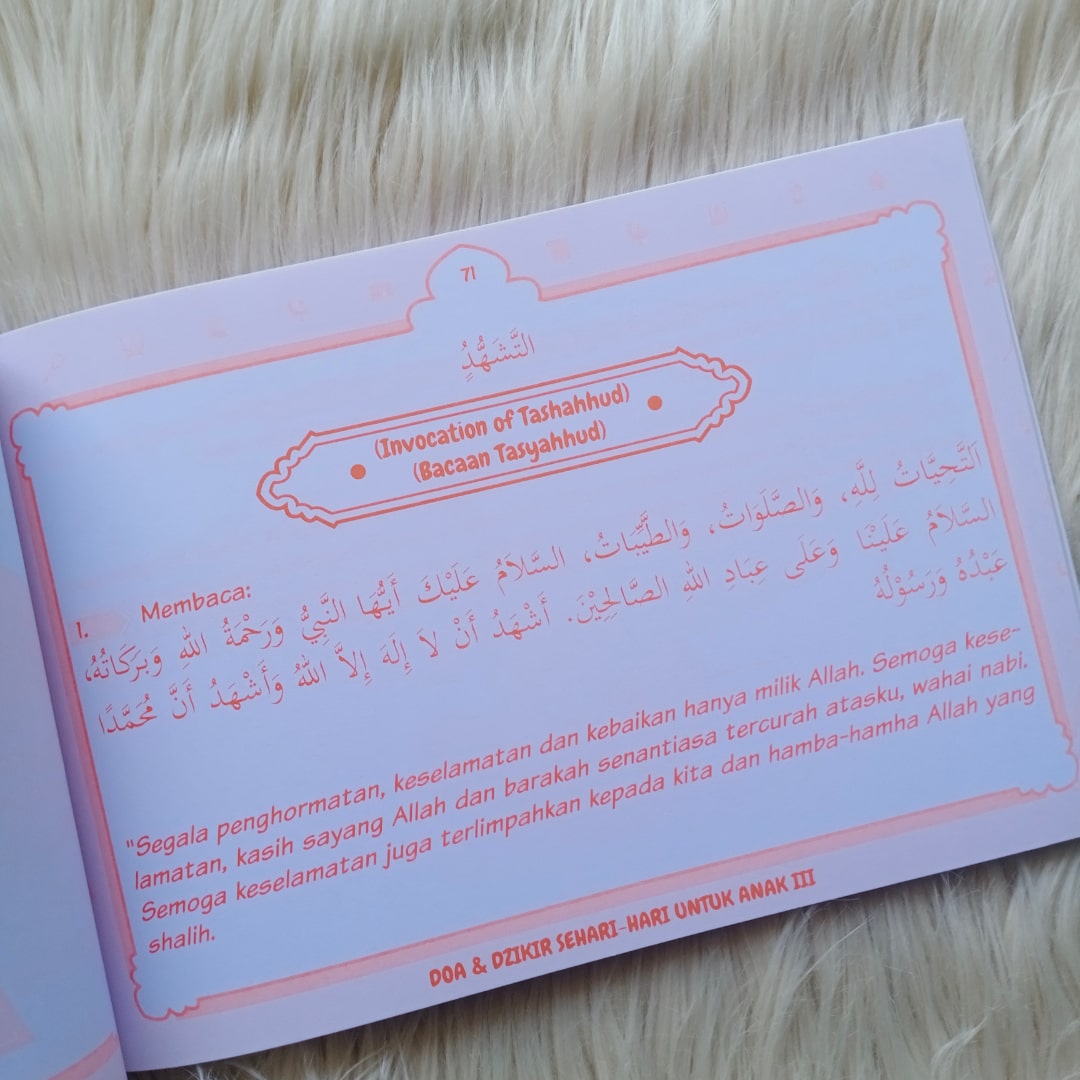 71
التَّشَهُّدُ
(Invocation of Tashahhud)
(Bacaan Tasyahhud)
1. Membaca:
اَلتَّحِيَّاتُ لِلَّهِ، وَالصَّلَوَاتُ، وَالطَّيِّبَاتُ، السَّلاَمُ عَلَيْكَ أَيُّهَا النَّبِيُّ وَرَحْمَةُ اللهِ وَبَرَكَاتُهُ،
السَّلاَمُ عَلَيْنَا وَعَلَى عِبَادِ اللهِ الصَّالِحِيْنَ. أَشْهَدُ أَنْ لاَ إِلَهَ إِلاَّ اللهُ وَأَشْهَدُ أَنَّ مُحَمَّدًا
عَبْدُهُ وَرَسُوْلُهُ
"Segala penghormatan, keselamatan dan kebaikan hanya milik Allah. Semoga kese-
lamatan, kasih sayang Allah dan barakah senantiasa tercurah atasku, wahai nabi.
Semoga keselamatan juga terlimpahkan kepada kita dan hamba-hamha Allah yang
shalih.
DOA & DZIKIR SEHARI-HARI UNTUK ANAK III